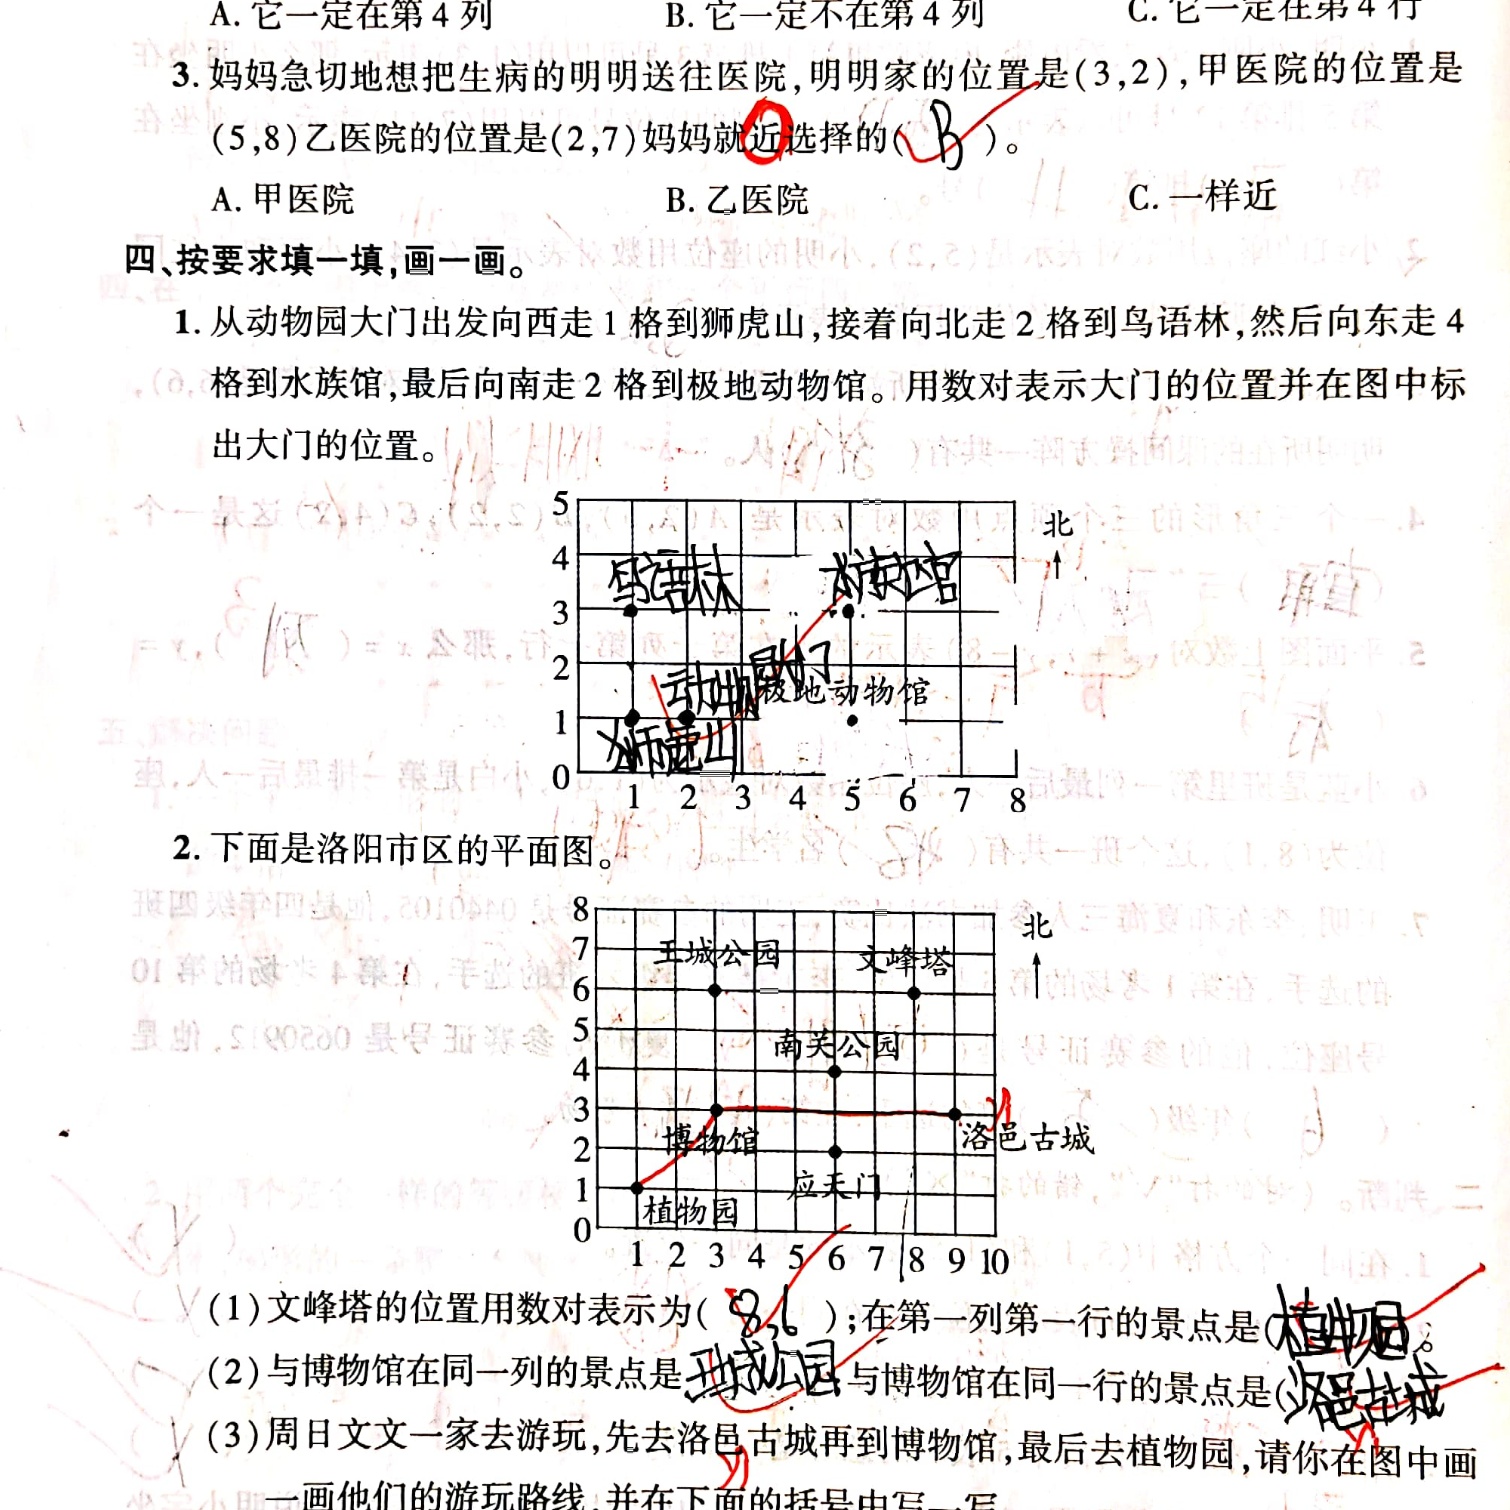 A. 它一定在第4列 B. 它一定不在第4列 C. 它一定在第4行
3. 妈妈急切地想把生病的明明送往医院,明明家的位置是(3,2),甲医院的位置是
(5,8)乙医院的位置是(2,7)妈妈就近选择的( B )。
A. 甲医院 B. 乙医院 C. 一样近
四、按要求填一填,画一画。
1. 从动物园大门出发向西走1格到狮虎山,接着向北走2格到鸟语林,然后向东走4
格到水族馆,最后向南走2格到极地动物馆。用数对表示大门的位置并在图中标
出大门的位置。
5
北
4
鸟语林 水族馆
3
2
极地动物馆
1
狮虎山
0
1 2 3 4 5 6 7 8
2. 下面是洛阳市区的平面图。
8
北
7 王城公园 文峰塔
6
5
南关公园
4
3
博物馆 洛邑古城
2
应天门
1
植物园
0
1 2 3 4 5 6 7 8 9 10
(1)文峰塔的位置用数对表示为( 8,6 );在第一列第一行的景点是(植物园)。
(2)与博物馆在同一列的景点是王城公园,与博物馆在同一行的景点是(洛邑古城
(3)周日文文一家去游玩,先去洛邑古城再到博物馆,最后去植物园,请你在图中画
一画他们的游玩路线,并在下面的括号中写一写